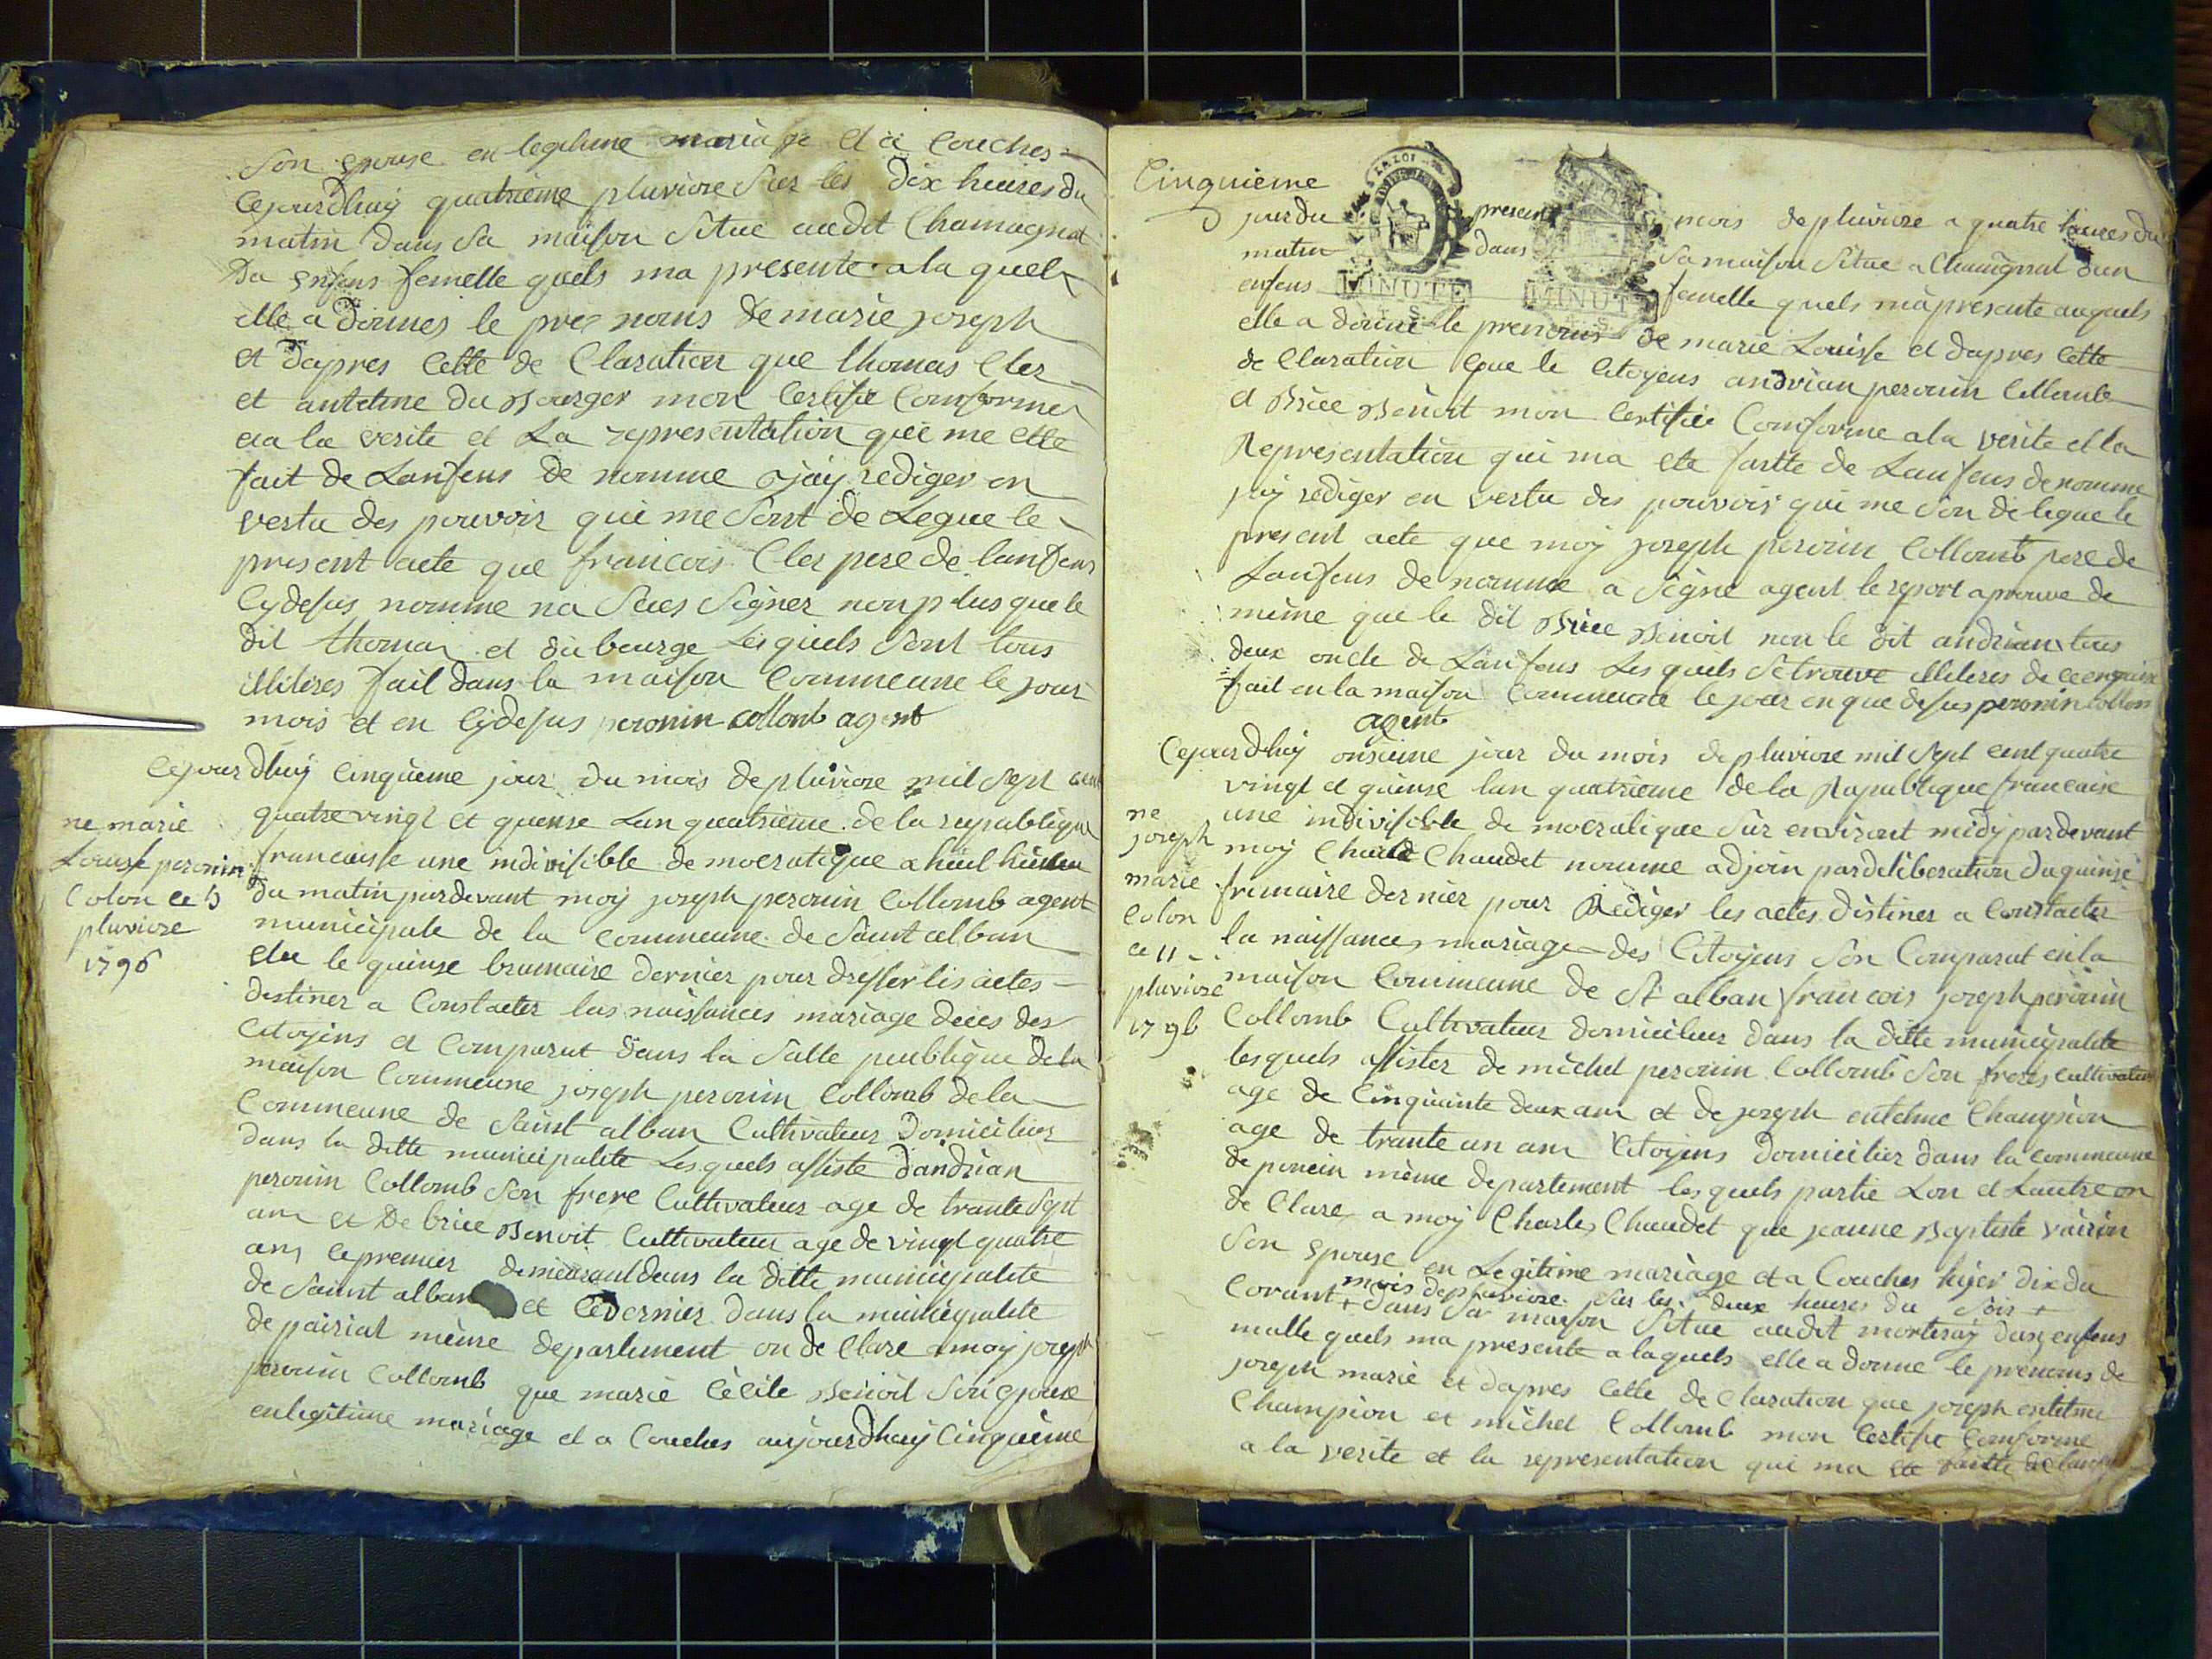 Son epouse en legitime mariage et a Couches
Cejourdhuy quatrieme pluviose Sur les dix heures du
matin dans Sa maison Situe audit Chamagnat
Du enfens femelle quels ma presente a la quel
elle a donnes le pre noms de marie joseph
et dapres Cette de Claration que thomas Cler
et antelme du Bourger mon Certifie Conforme
a la verite et La representation que me ette
fait de Lanfens de nomme jay rediger en
vertu des pouvoir qui me Sont de Legue le
present acte que francois Cler pere de lanfens
Cydesus nomme na Sues Signer non plus que le
dit thomas et du bourge Les quels Sont tous
illiteres fait dans la maison Commeune le jour
mois et en Cydesus peronin collonb agent
Cejourdhuy Cinquieme jour du mois de pluviose mil Sept cent
quatre vingt et quense Lan quatrieme de la republique
francaisse une indivisible de mocratique a huit heures
du matin pardevant moy joseph perouin Collomb agent
municipale de la Commeune de Saint alban
elu le quinse brumaire dernier pour dresser lis actes
destiner a Constacter las naissances mariage deces des
Citoyins et Comparut dans la Salle peublique de la
maison Commeune joseph perouin Collomb de la
Commeune de Saint alban Cultivateur Domicilier
dans la ditte municipalite Les quels assiste dandrian
perouin Collomb Son frere Cultivateur age de trante Sept
am et De brice Benoit Cultivateur age de vingt quatre
ans le premier demeurant dans la ditte municipalite
de Saint alban et le dernier dans la municipalite
de poiriat même departement on de Clare a moy joseph
perouin Collomb que marie Cécile Benoit Son epouse
en legitime mariage et a Couches aujourdhuy Cinquième
ne marie
Louisse peronin
Colon ce 5
pluviose
1796
Cinquieme
jour du present mois de pluviose a quatre heures du
matin dans Sa maison Situe a Chamagnat dun
enfens femelle quels ma presente auquels
MINUTE MINUTE
elle a donné le prenoms de marie Louisse et dapres Cette
de Claration que le Citoyens andrian perouin Collomb
et Brice Benoit mon Certifie Conforme a la verite et la
Representation qui ma ete faitte de Lanfens de nomme
jay rediger en vertu des pouvoir qui me Son delegue le
present acte que moy joseph perouin Collomb pere de
Lanfens de nomme a Signe agent le report aprouve de
même que le dit Brice Benoit non le dit andrian tous
deux oncle de Lanfens Les quels Se trouve illiteres de ce enquis
fait en la maison Commeune le jour en que desus peronin collon
agent
Cejourdhuy onsieme jour du mois de pluviose mil Sept cent quatre
vingt et quinse lan quatrieme de la Republique francaise
une indivisible de mocratique Sur environt midy pardevant
moy Charle Chaudet nomme adjoin par deliberation du quinse
frimaire dernier pour Rediger les actes distiner a Constacter
la naissances mariage des Citoyens Son Comparut en la
maison Commeune de St alban francois joseph perouin
Collomb Cultivateur domicilier dans la ditte municipalite
lesquels assister de michel perouin Collomb Son freres cultivateur
age de Cinquante deux am et de joseph entelme Champion
age de trante un am Citoyens domicilier dans la commeune
de poncin même departement les quels partie Lon et Lautre on
de Clare a moy Charles Chaudet que jeanne Baptiste vuirin
Son epouse en Legitime mariage et a Couches hyer dix du
Corant mois de pluviose Sur les deux heures du Soir +
+ dans Sa maison Situe audit morteray dun enfens
malle quels ma presente a laquels elle a donne le prenoms de
joseph marie et dapres Cette de Claration que joseph entelme
Champion et michel Collomb mon Certifie Conforme
a la verite et la representation qui ma ete faitte de lanfens
ne
joseph
marie
Colon
ce 11
pluviose
1796